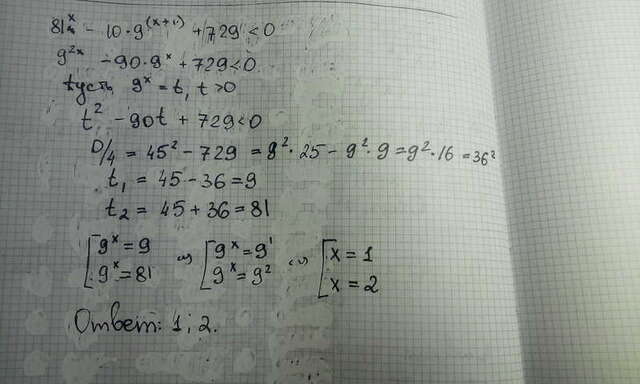 81^x - 10·9^(x+1) + 729 < 0
9^2x - 90·9^x + 729 < 0
пусть 9^x = t, t > 0
t^2 - 90t + 729 < 0
D/4 = 45² - 729 = 9²·25 - 9²·9 = 9²·16 = 36²
t₁ = 45 - 36 = 9
t₂ = 45 + 36 = 81
[9^x = 9 <=> [9^x = 9^1 <=> [x = 1
[9^x = 81 [9^x = 9^2 [x = 2
Ответ: 1; 2.